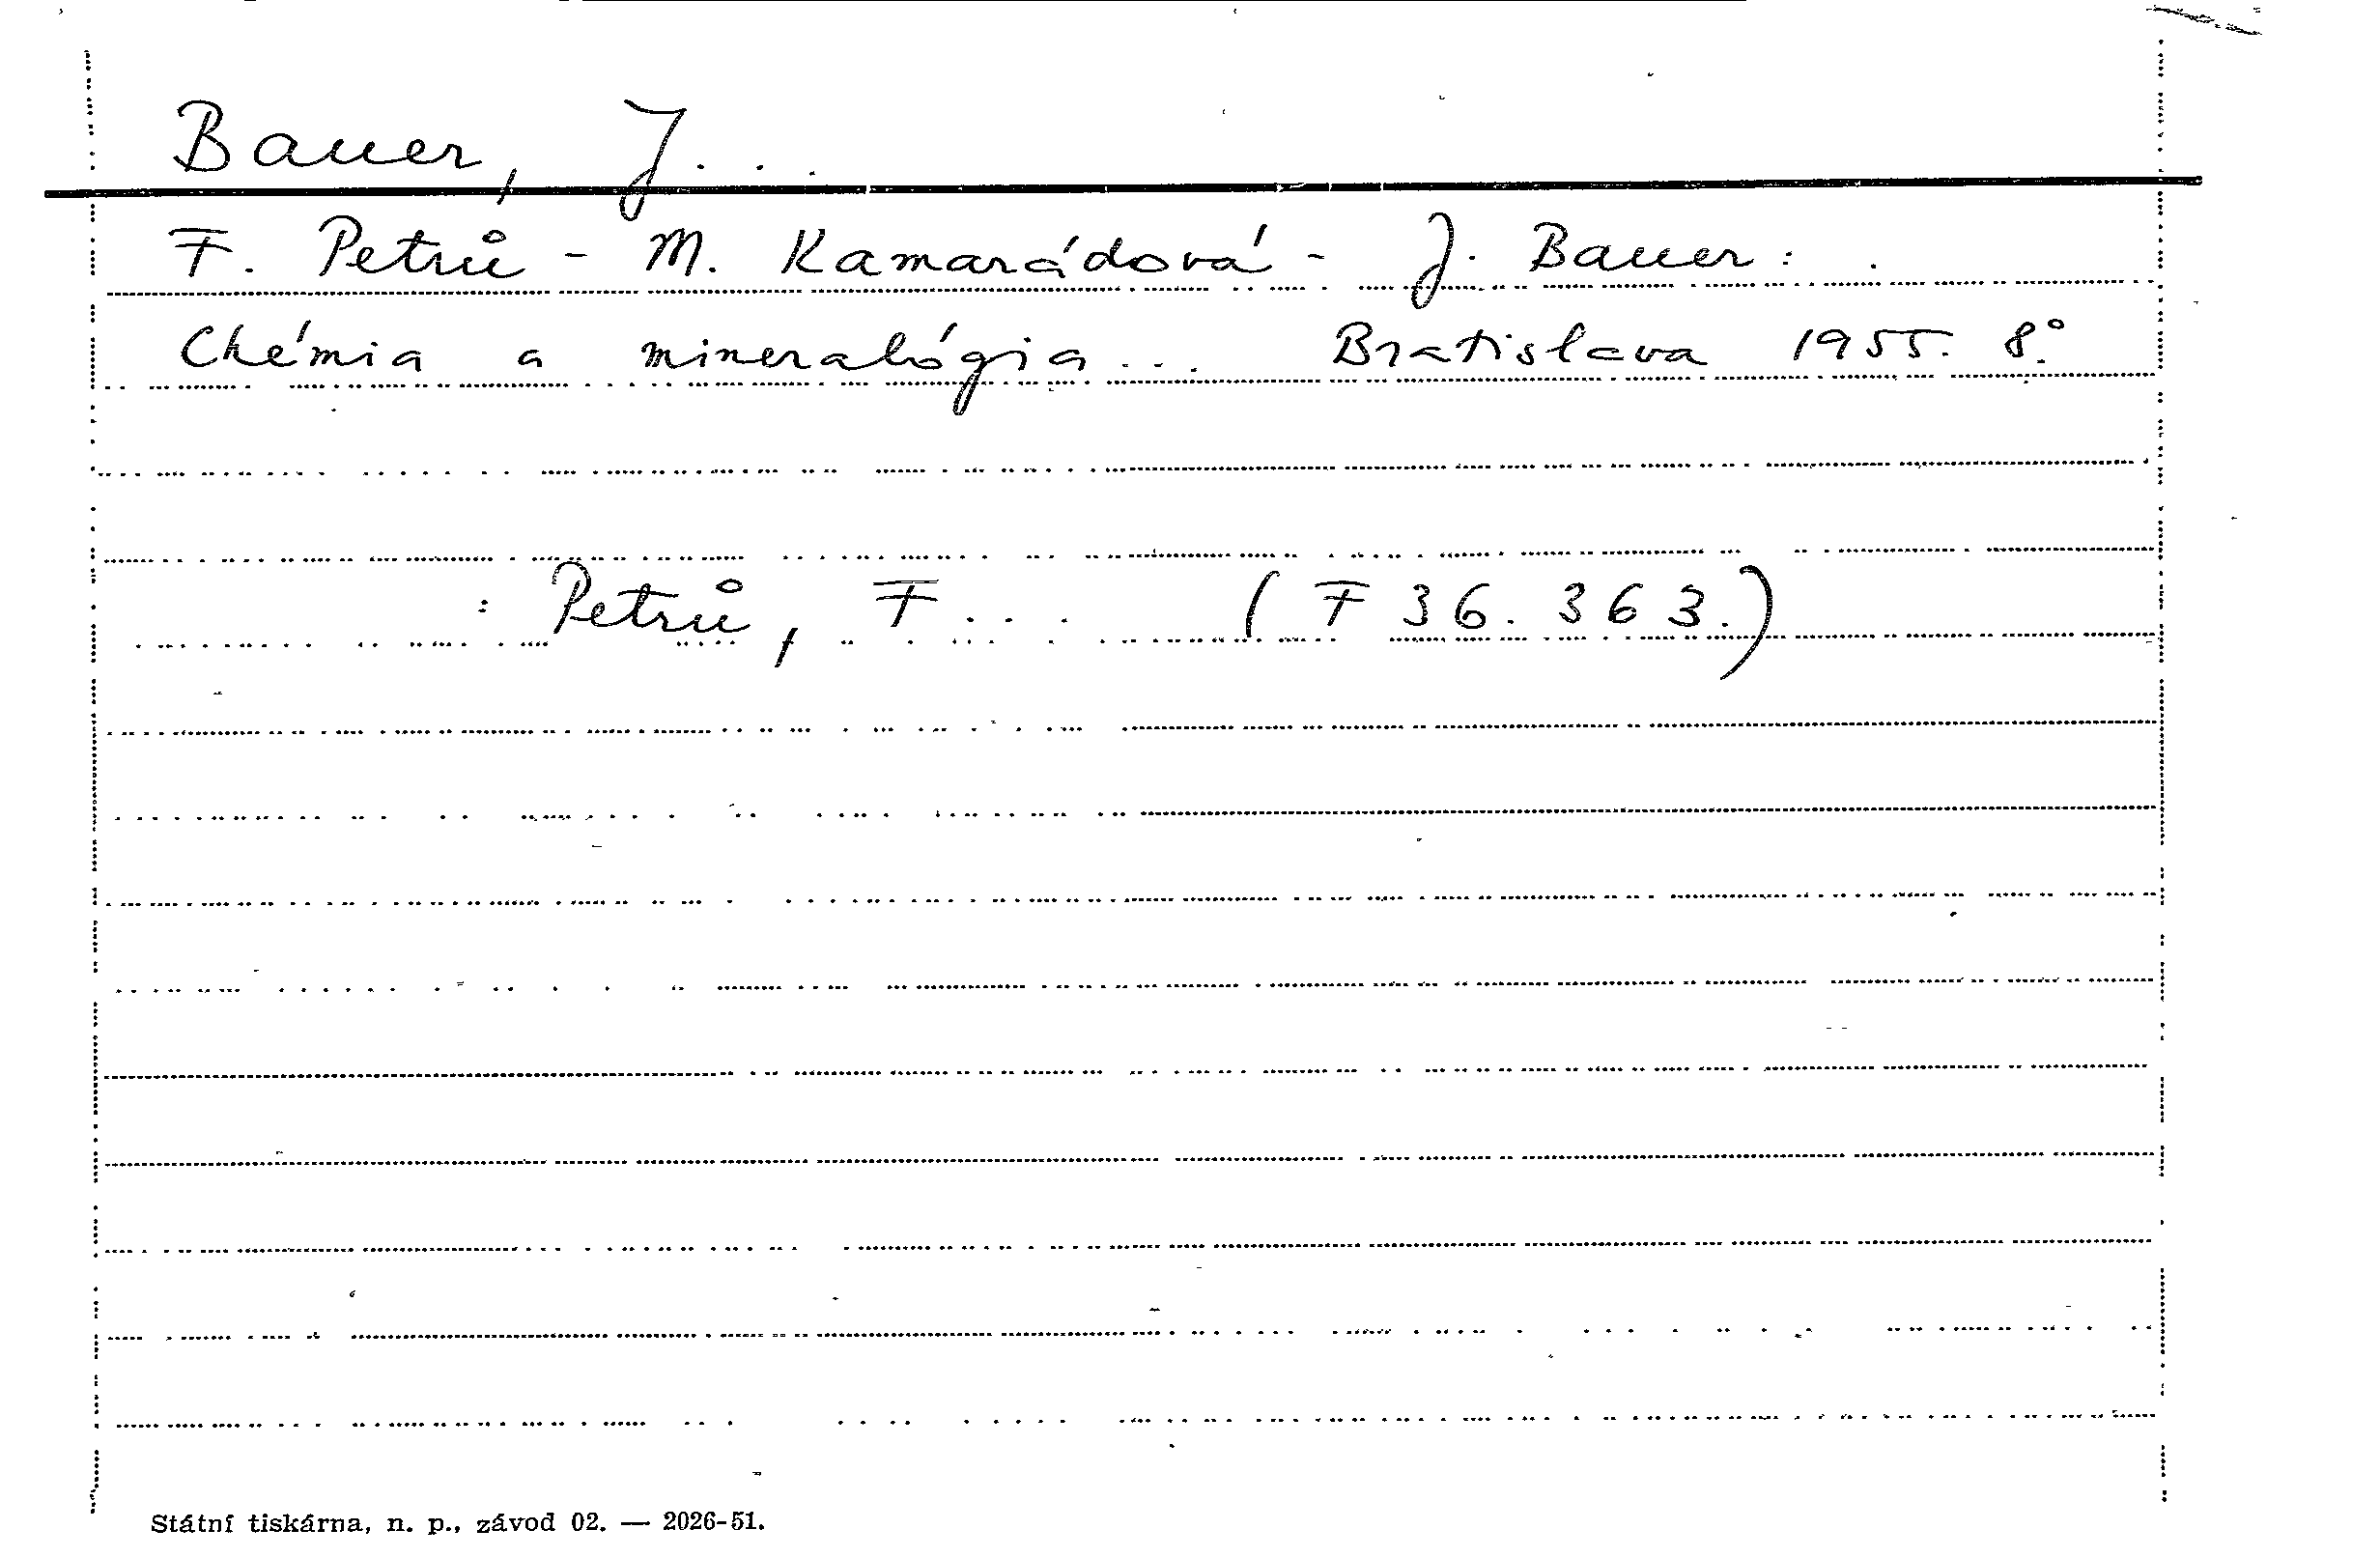 Bauer, J...
F. Petrů - M. Kamarádová - J. Bauer:
Chémia a mineralógia... Bratislava 1955. 8°.
: Petrů, F... (F 36.363.)
Státní tiskárna, n. p., závod 02. — 2026-51.